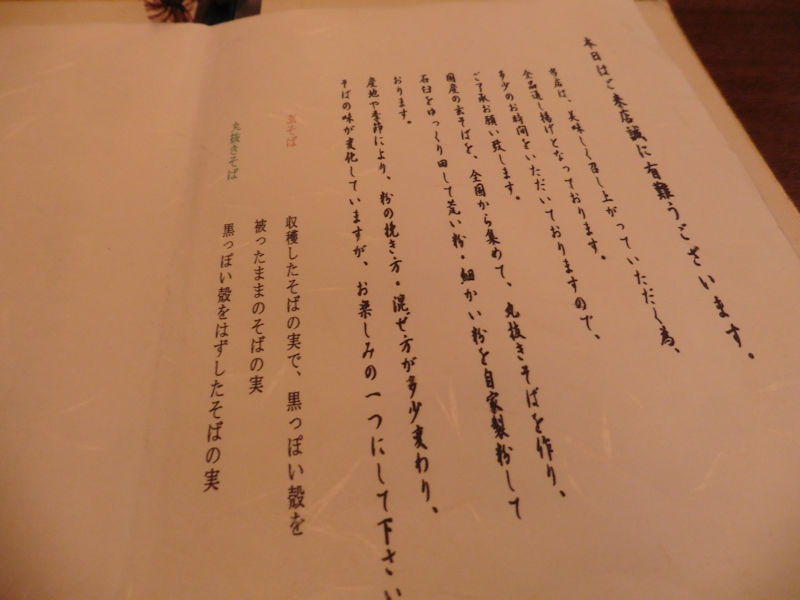 本日はご来店誠に有難うございます。
当店は、美味しく召し上がっていただく為、
全品通し揚げとなっております。
多少のお時間をいただいておりますので、
ご了承お願い致します。
国産の玄そばを、全国から集めて、丸抜きそばを作り、
石臼をゆっくり回して荒い粉・細かい粉を自家製粉して
おります。
産地や季節により、粉の挽き方・混ぜ方が多少変わり、
そばの味が変化していますが、お楽しみの一つにして下さい
玄そば
収穫したそばの実で、黒っぽい殻を
被ったままのそばの実
丸抜きそば
黒っぽい殻をはずしたそばの実